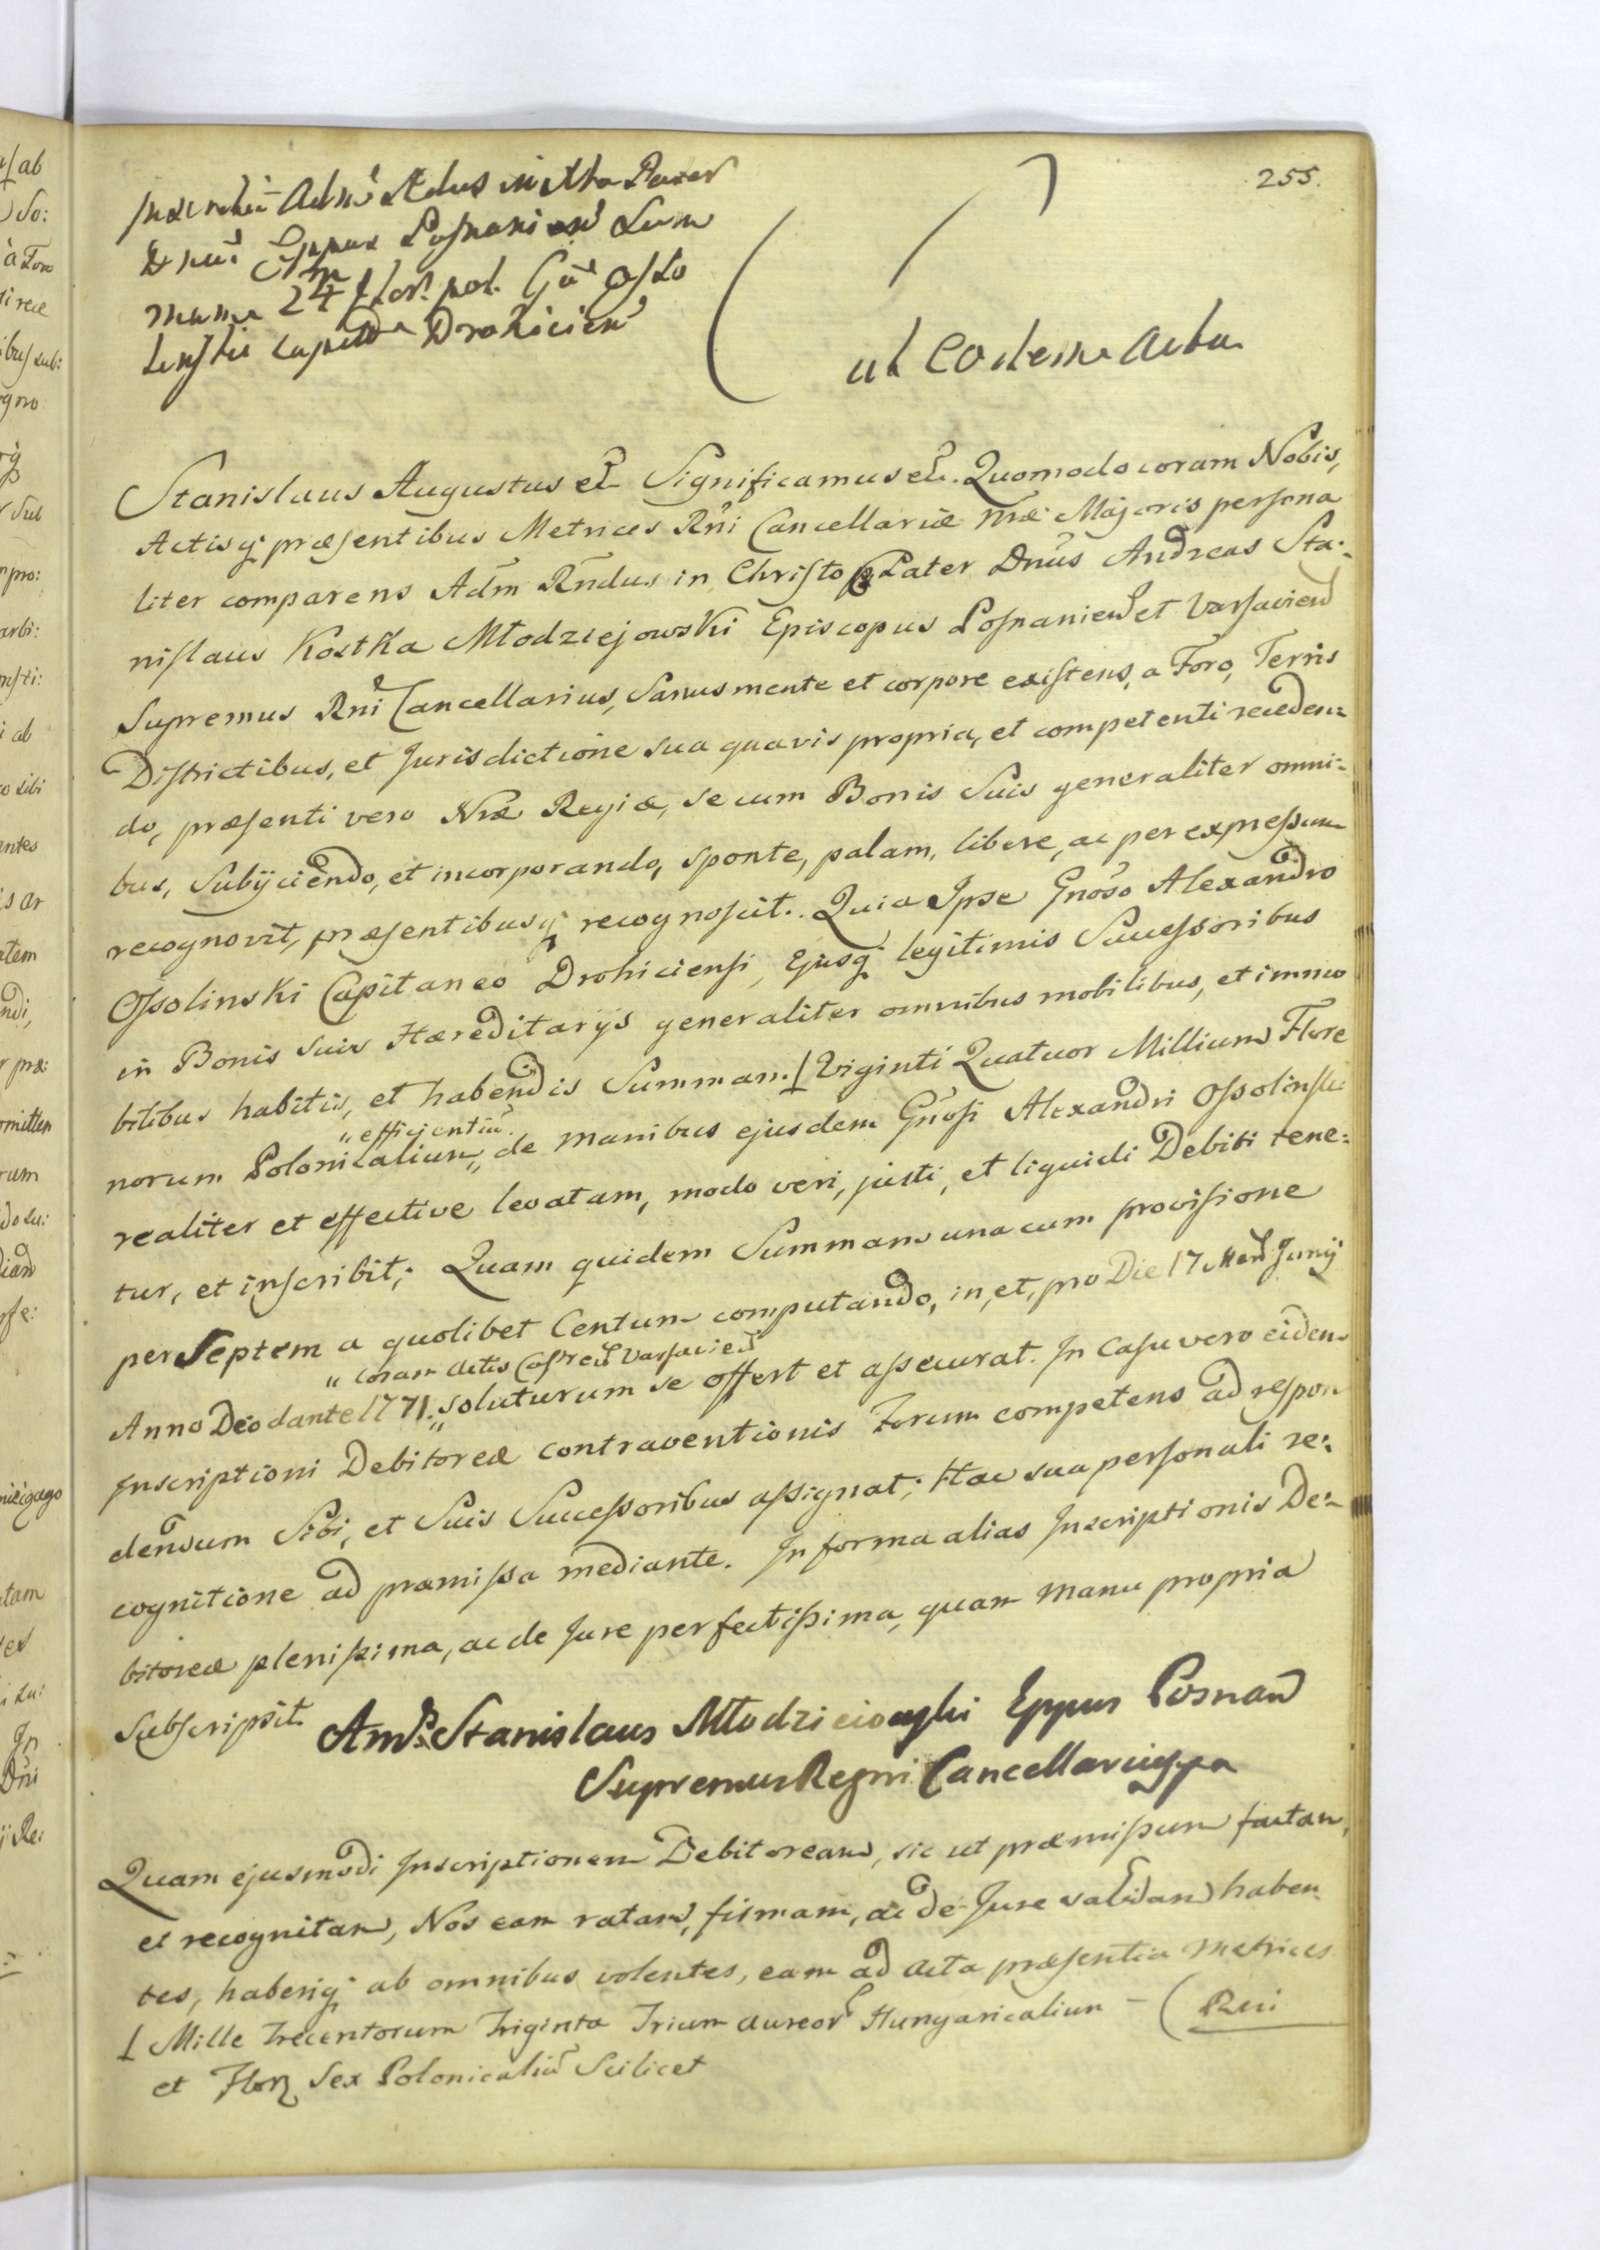 255.
Inscribit Adm Rdus in Xto Pater
Dnus Eppus Posnanien Sum
mam 24 m Flor. pol. Gso Osso
linski Capitto Drohicien
ad Eodem Acta
Stanislaus Augustus etc. Significamus etc. Quomodo coram Nobis,
Actisq. præsentibus Metrices Rni Cancellariæ Nræ Majoris persona
liter comparens Adm Rndus in Christo Pater Dnus Andreas Sta:
nislaus Kostka Młodziejowski Episcopus Posnanien et Varsavien
Supremus Rni Cancellarius, Sanus mente et corpore existens, a Foro, Terris
Districtibus, et Jurisdictione sua quavis propria, et competenti receden:
do, præsenti vero Nræ Regiæ, se cum Bonis Suis generaliter omni:
bus, Subijciendo, et incorporando, sponte, palam, libere, ac per expressum
recognovit, præsentibusq. recognoscit. Quia Ipse Gnoso Alexandro
Ossolinski Capitaneo Drohiciensi, Ejusq. legitimis Successoribus
in Bonis suis Hæreditarÿs generaliter omnibus mobilibus, et immo
bilibus habitis, et habendis Summam ⊥ Viginti Quatuor Millium Flore
„efficientiu.
norum Polonicalium „ de manibus ejusdem Gnosi Alexandri Ossolinski
realiter et effective levatam, modo veri, justi, et liquidi Debiti tene:
tur, et inscribit; Quam quidem Summam una cum provisione
per Septem a quolibet Centum computando, in, et, pro Die 17 Men Junÿ
„ coram Actis Castren Varsavien
Anno Deo dante 1771. „ soluturum se offert et assecurat. In Casu vero eidem
Inscriptioni Debitoreæ contraventionis Forum competens ad respon
dendum Sibi, et Suis Successoribus assignat; Hac sua personali re:
cognitione ad præmissa mediante. In forma alias Inscriptionis De:
bitoreæ plenissima, ac de Jure perfectissima, quam manu propria
Subscripsit.
And. Stanislaus Młodzieiowski Eppus Posnan
Supremus Regni Cancellarius mpa
Quam ejusmodi Inscriptionem Debitoream, sic ut præmissum factam,
et recognitam, Nos eam ratam, firmam, ac de Jure validam haben
tes, haberiq. ab omnibus volentes, eam ad Acta præsentia Metrices
Rni
⊥ Mille Trecentorum Triginta Trium aureor Hungaricalium
et Flor Sex Polonicaliu Scilicet